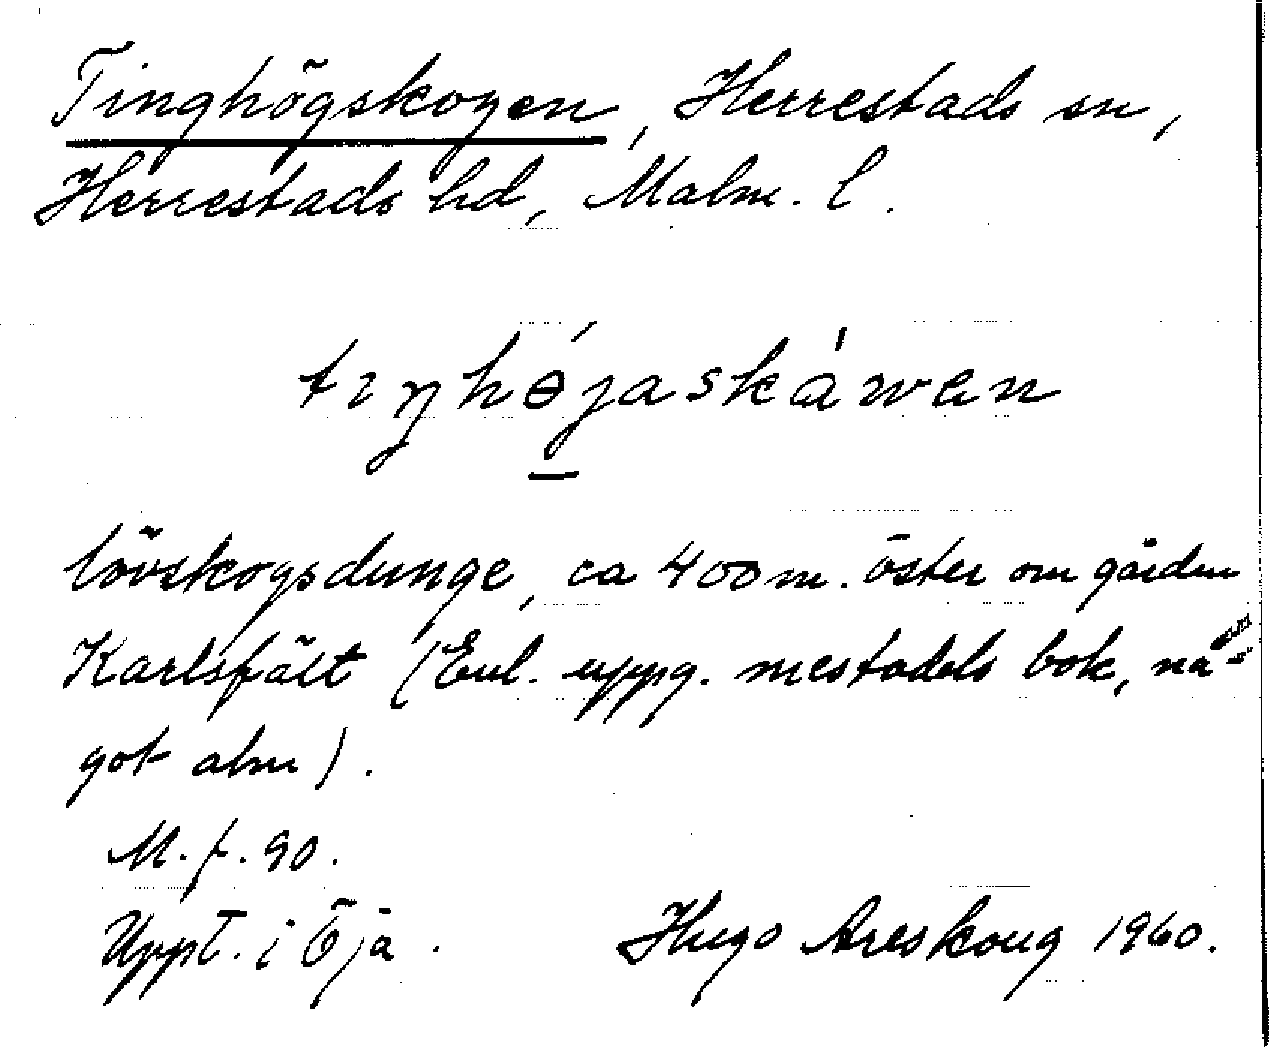 Tinghögskogen, Herrestads sn,
Herrestads hd, Malm. l.
tıŋhɵ́jaskàwen
lövskogsdunge, ca 400 m. öster om gården
Karlsfält (Enl. uppg. mestadels bok, nå-
got alm).
M. f. 90.
Uppt. i Öja. Hugo Areskoug 1960.